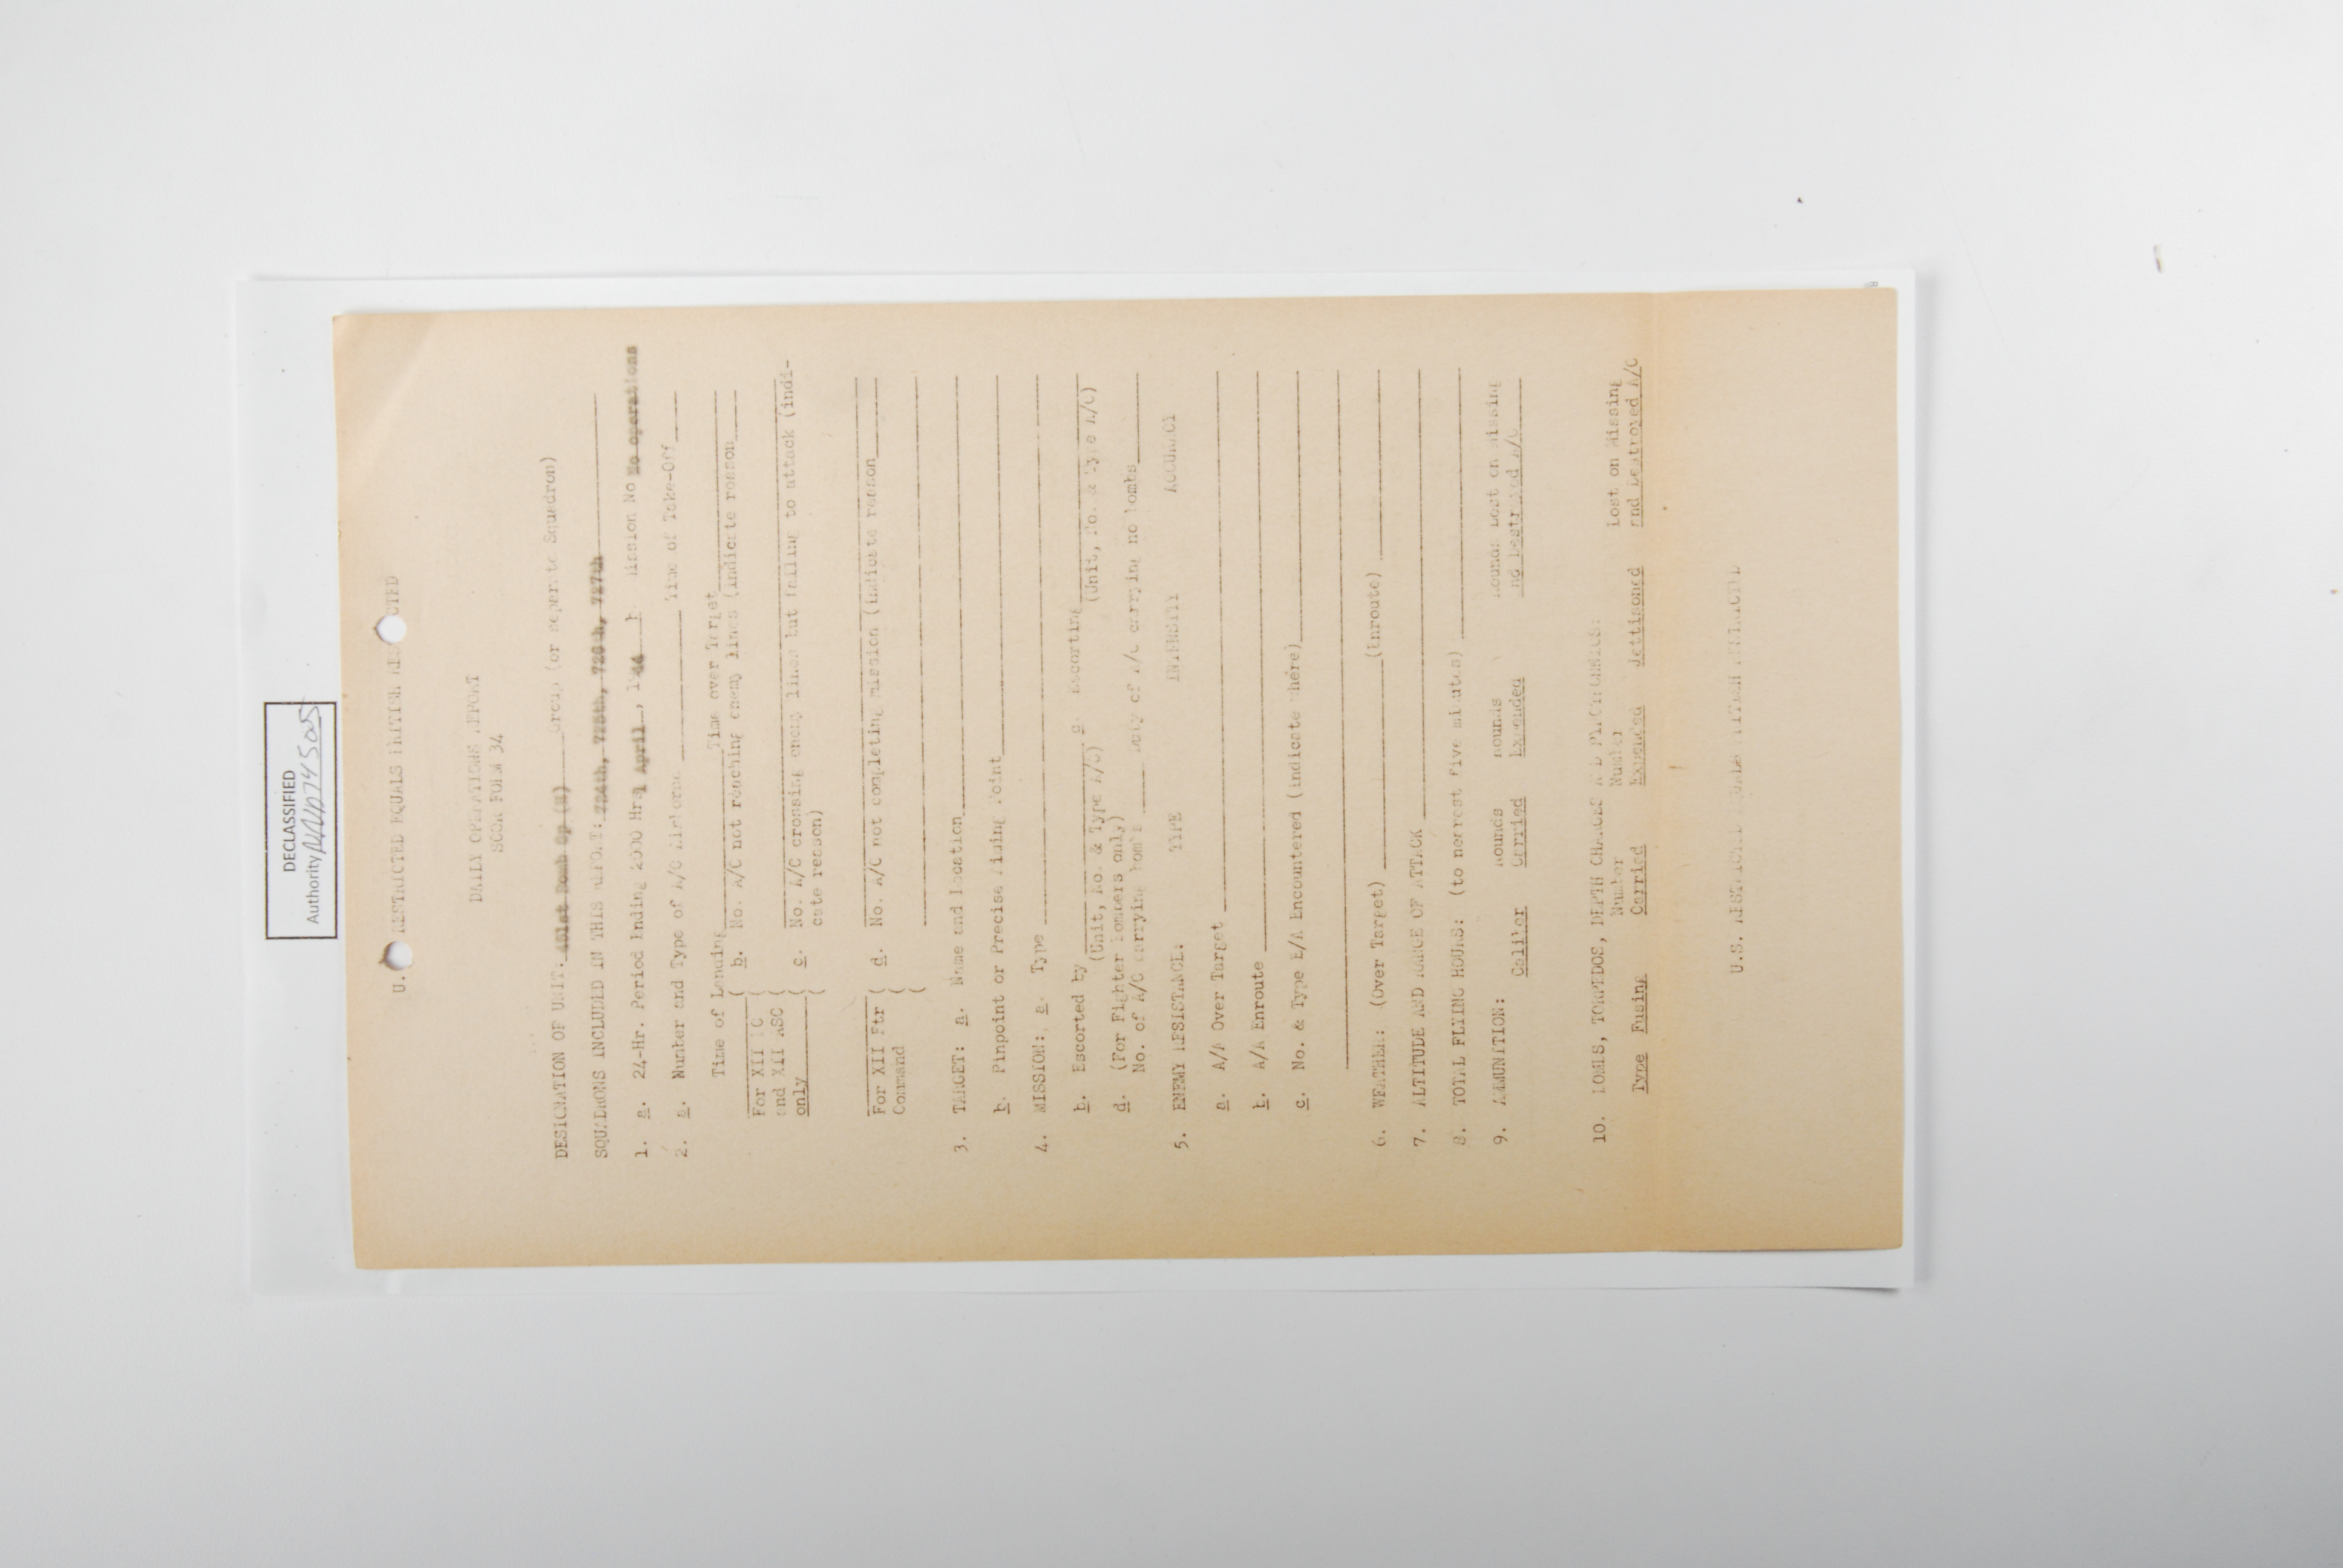 DECLASSIFIED
Authority NND745005
U. RESTRICTED EQUALS BRITISH RES CTED
DAILY OPERATIONS REPORT
SCOR FORM 34
DESIGNATION OF UNIT: 451st Bomb Gp (H) Group (or separate Squadron)
SQUADRONS INCLUDED IN THIS REPORT: 724th, 725th, 726th, 727th
1. a. 24-Hr. Period Ending 2000 Hrs 1 April, 1944 b. Mission No No operations
2. a. Number and Type of A/C Airborne Time of Take-Off
Time of Landing Time over Target
For XII BC ( b. No. A/C not reaching enemy lines (indicate reason
and XII ASC (
only ( c. No. A/C crossing enemy lines but failing to attack (indi-
( cate reason)
For XII Ftr ( d. No. A/C not completing mission (indicate reason
Command (
(
3. TARGET: a. Name and Location
b. Pinpoint or Precise Aiming Point
4. MISSION: a. Type
b. Escorted by c. Escorting
(Unit, No. & Type A/C) (Unit, No. & Type A/C)
d. (For Fighter Bombers only)
No. of A/C carrying bombs Duty of A/C carrying no bombs
5. ENEMY RESISTANCE: TYPE INTENSITY ACCURACY
a. A/A Over Target
b. A/A Enroute
c. No. & Type E/A Encountered (indicate where)
6. WEATHER: (Over Target) (Enroute)
7. ALTITUDE AND RANGE OF ATTACK
8. TOTAL FLYING HOURS: (to nearest five minutes)
9. AMMUNITION: Rounds Rounds Rounds Lost on Missing
Caliber Carried Expended and Destroyed A/C
10. BOMBS, TORPEDOS, DEPTH CHARGES AND PYROTECHNICS:
Number Number Lost on Missing
Type Fusing Carried Expended Jettisoned and Destroyed A/C
U.S. RESTRICTED EQUALS BRITISH RESTRICTED